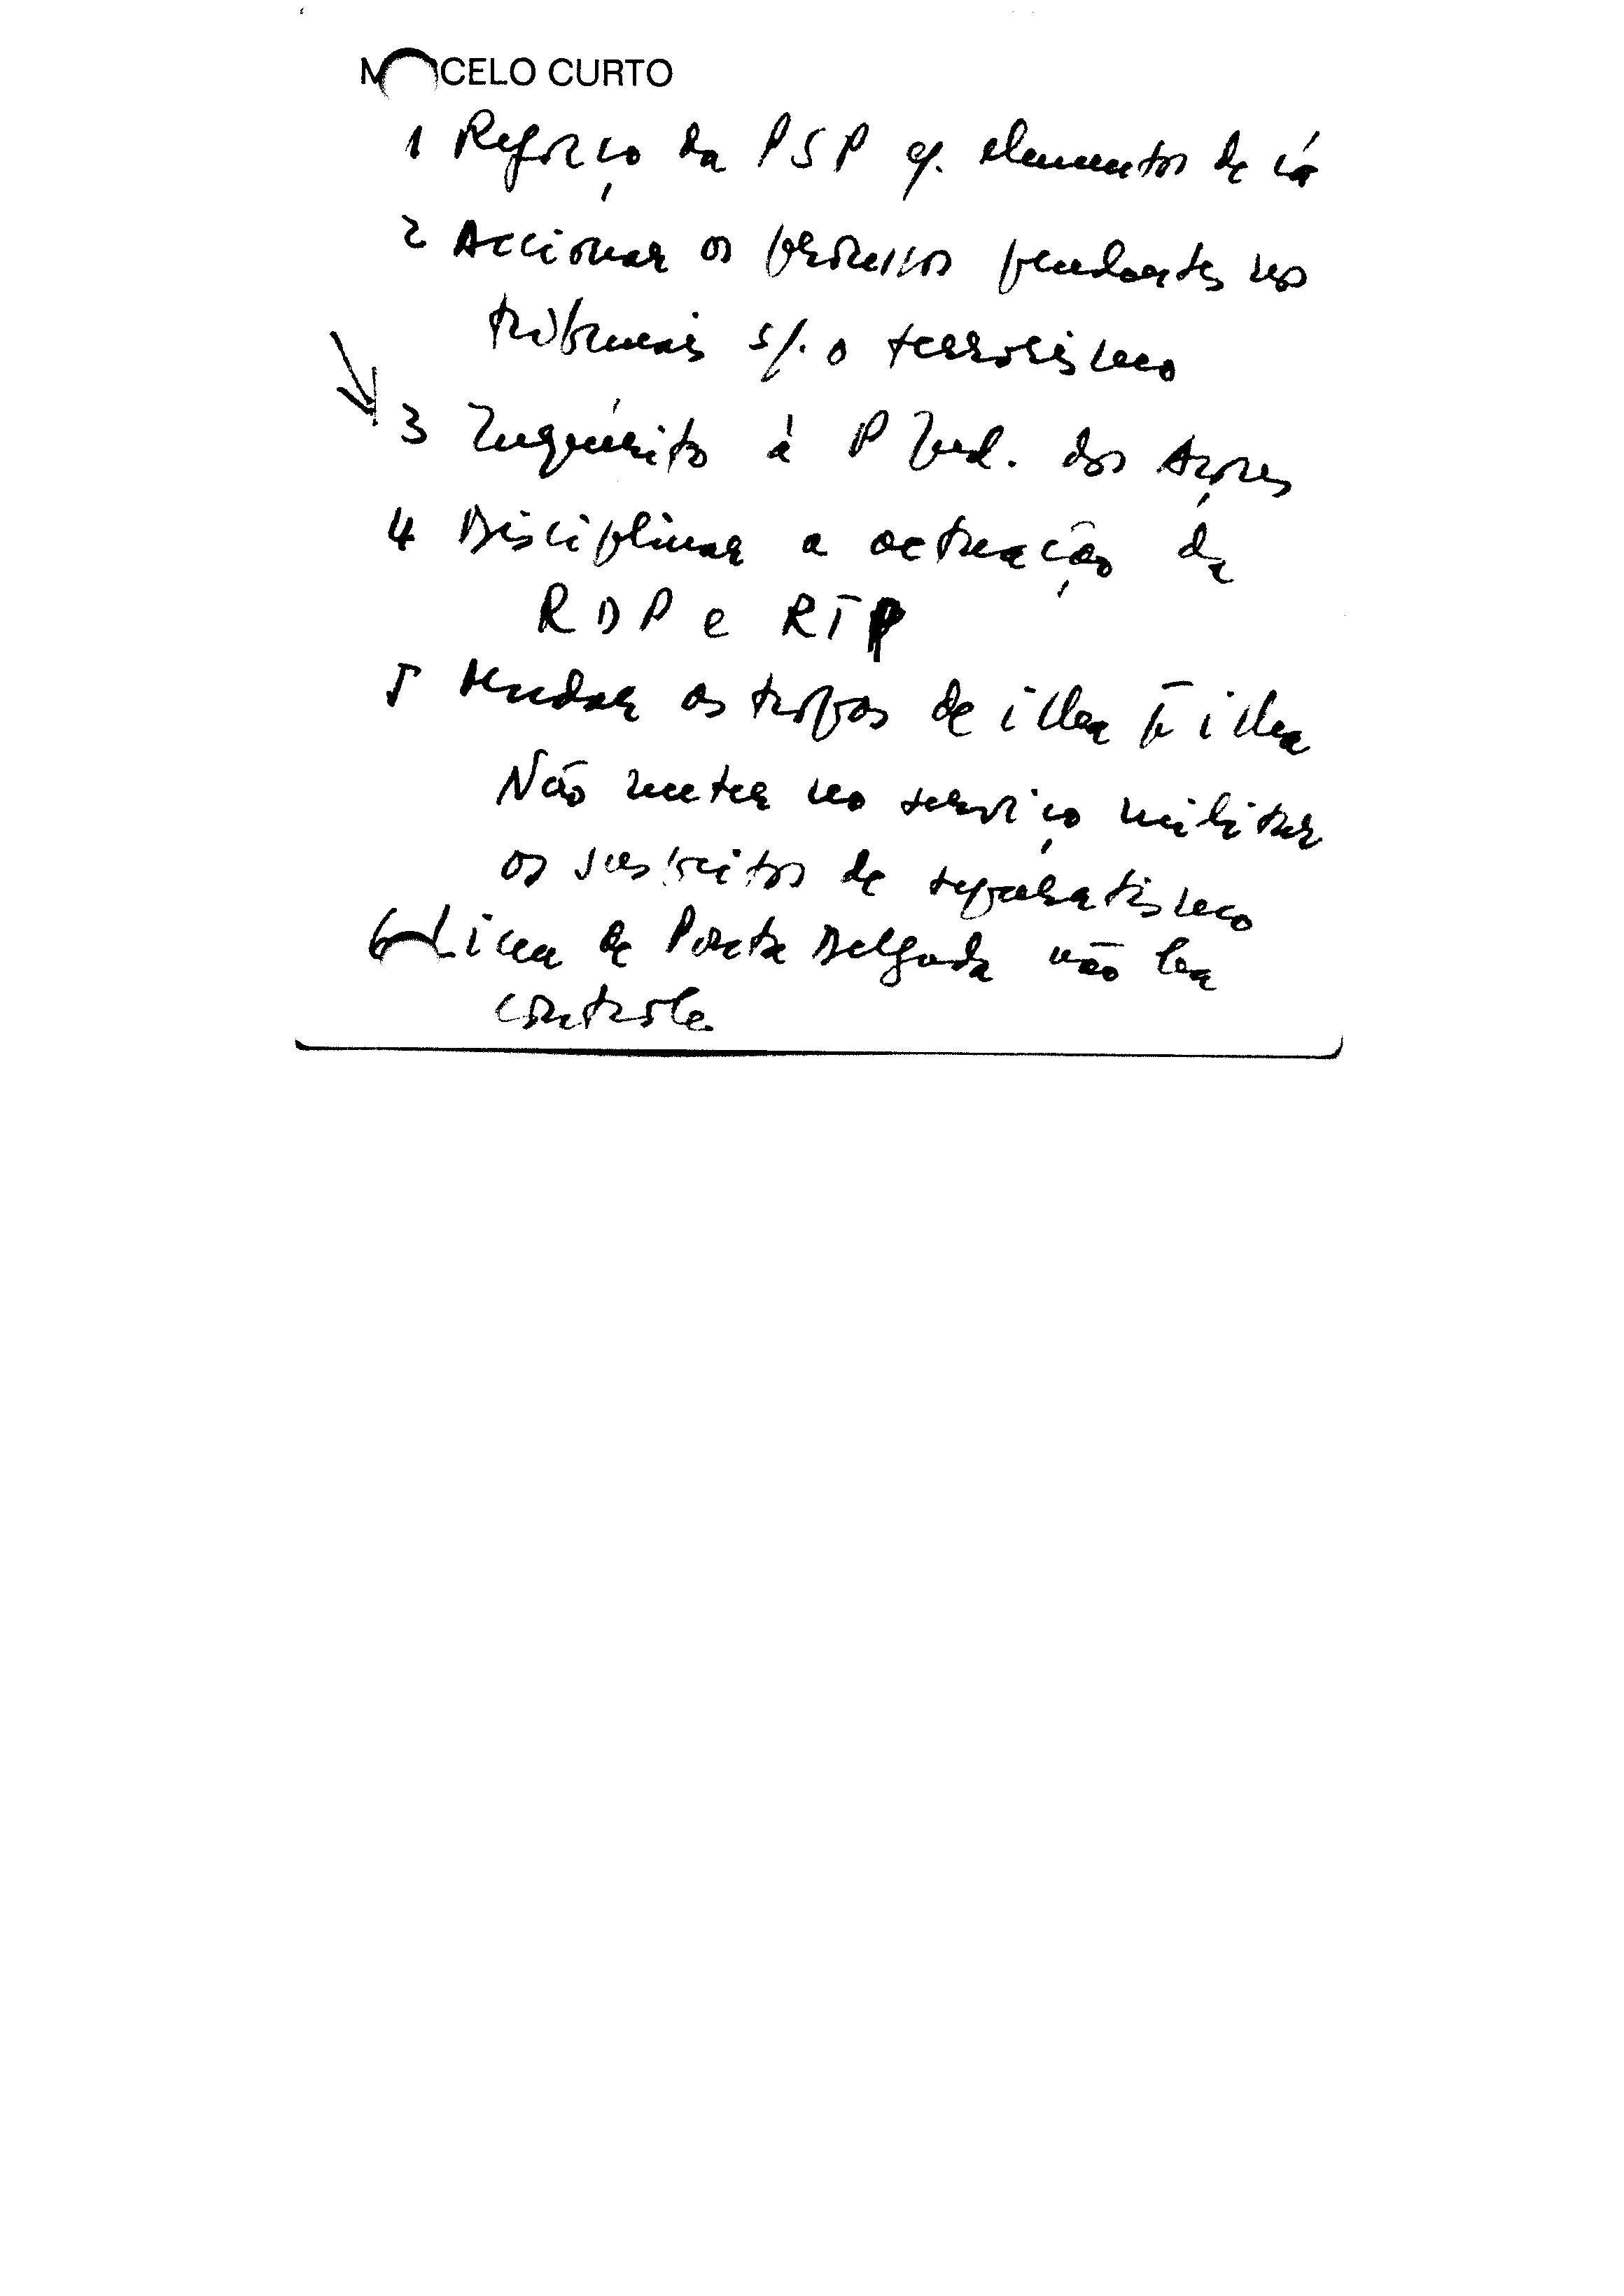 M CELO CURTO
1 Reforço da PSP c/. elementos de cá
2 Accionar os processos pendentes nos
tribunais s/. o terrorismo
3 Inquérito à P Jud. dos Açores
4 Disciplinar a actuação da
RDP e RTP
5 Mudar as tropas de ilha p̄ ilha
Não meter no serviço militar
os suspeitos de separatismo
6 Liceu de Ponta Delgada não há
controle